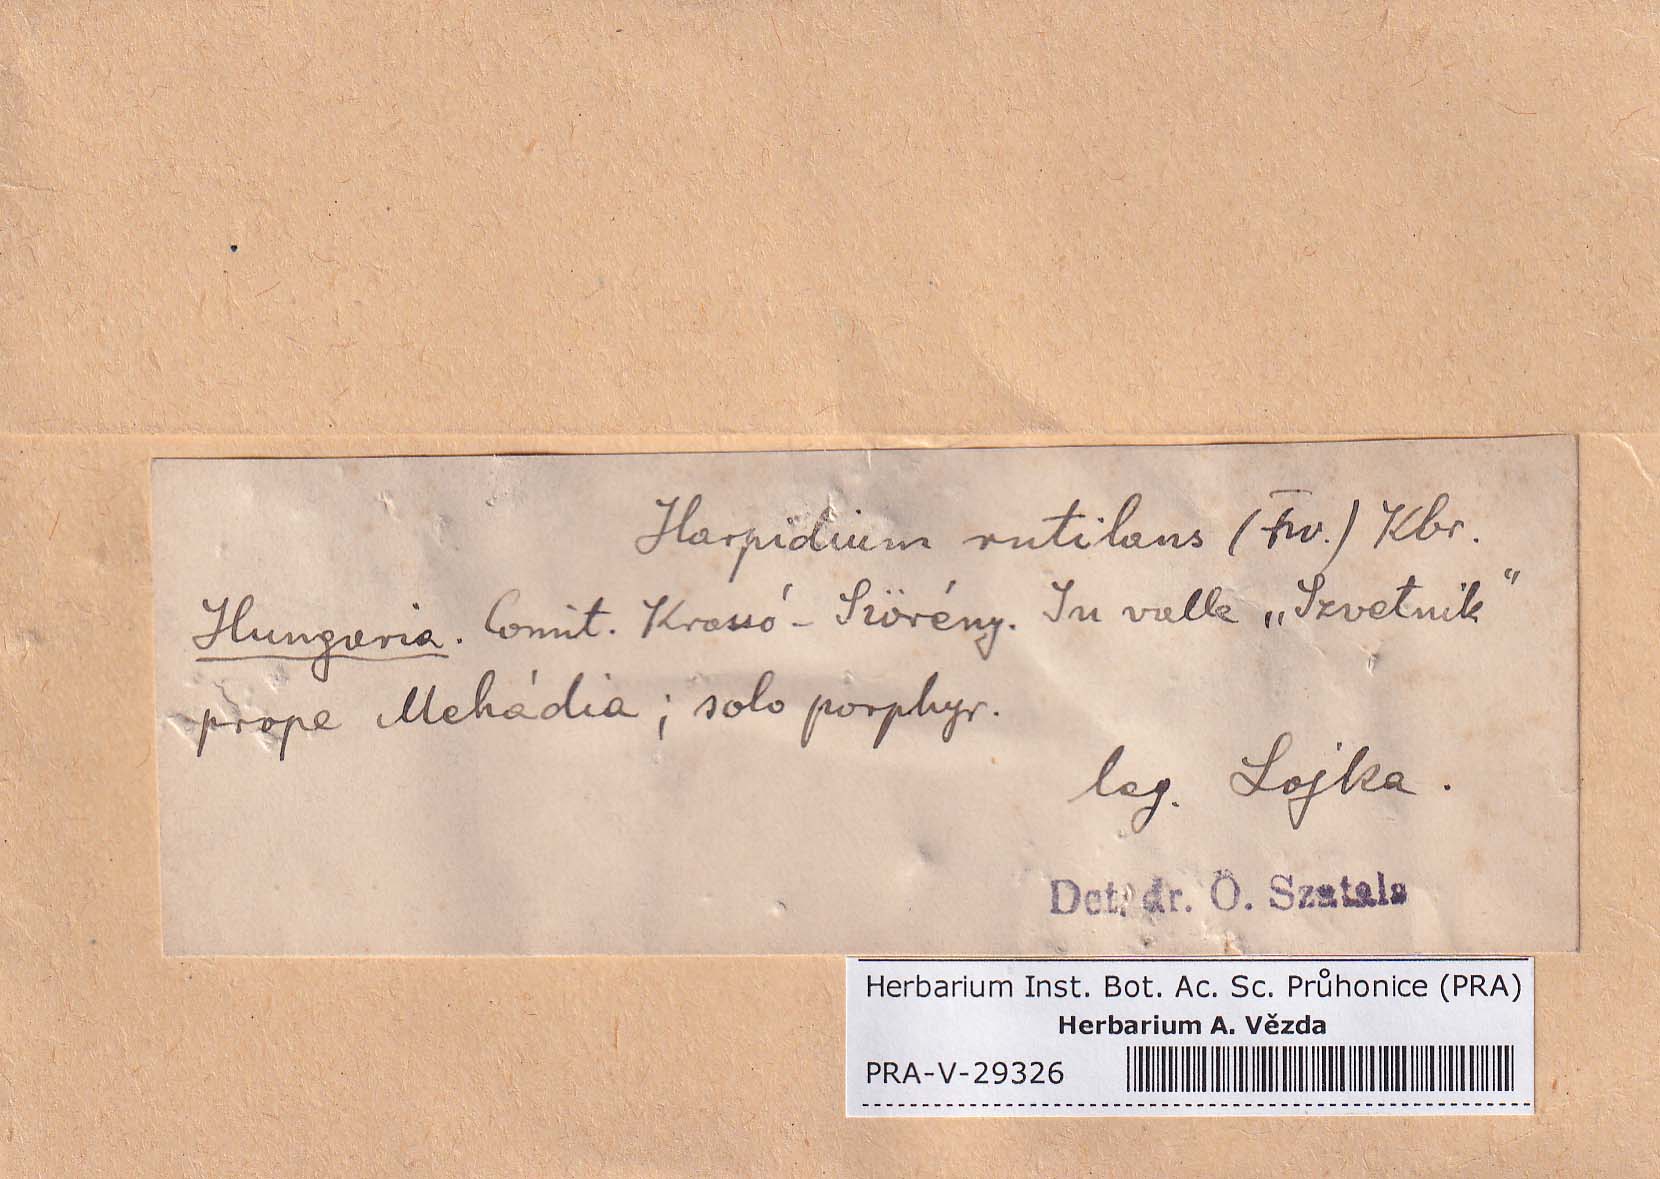 Harpidium rutilans (Fw.) Kbr.
Hungaria. Comit. Krassó-Szörény. In valle „Szvetnik“
prope Mehádia; solo porphyr.
leg. Lojka.
Det. dr. Ö. Szatala
Herbarium Inst. Bot. Ac. Sc. Průhonice (PRA)
Herbarium A. Vězda
PRA-V-29326